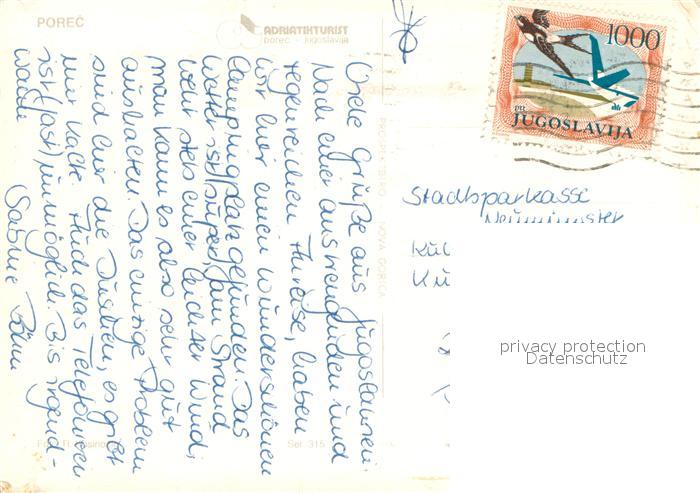 POREČ
ADRIATIKTURIST
poreč - jugoslavija
1000
JUGOSLAVIJA
Viele Grüße aus Jugoslawien.
Nach einer anstrengenden und
regenreichen Anreise, haben
wir hier einen wunderschönen
Campingplatz gefunden. Das
Wetter ist super, am Strand
weht stets ein leichter Wind,
man kann es also sehr gut
aushalten. Das einzige Problem
sind hier die Duschen, es gibt
nur kalte. Auch das Telefonieren
ist (fast) unmöglich. Bis irgend-
wann
Sabine
Stadtsparkasse
Neumünster
privacy protection
Datenschutz
NOVA GORICA
Ser. 315